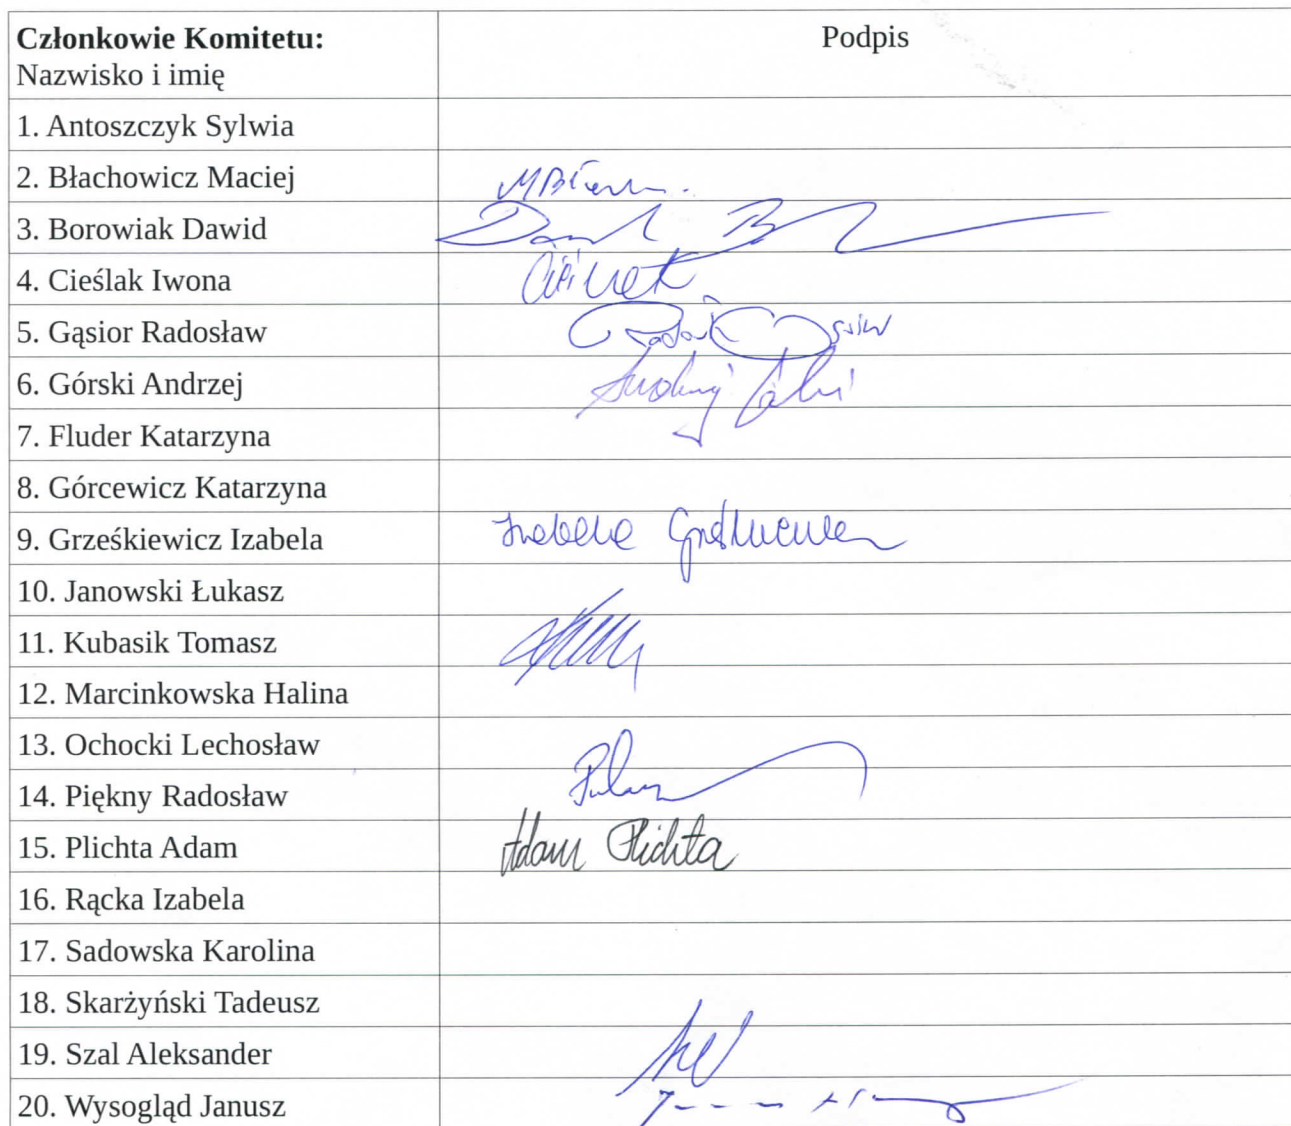 Członkowie Komitetu: Podpis
Nazwisko i imię
1. Antoszczyk Sylwia
2. Błachowicz Maciej
3. Borowiak Dawid
4. Cieślak Iwona
5. Gąsior Radosław
6. Górski Andrzej
7. Fluder Katarzyna
8. Górcewicz Katarzyna
9. Grześkiewicz Izabela
10. Janowski Łukasz
11. Kubasik Tomasz
12. Marcinkowska Halina
13. Ochocki Lechosław
14. Piękny Radosław
15. Plichta Adam Adam Plichta
16. Rącka Izabela
17. Sadowska Karolina
18. Skarżyński Tadeusz
19. Szal Aleksander
20. Wysogląd Janusz